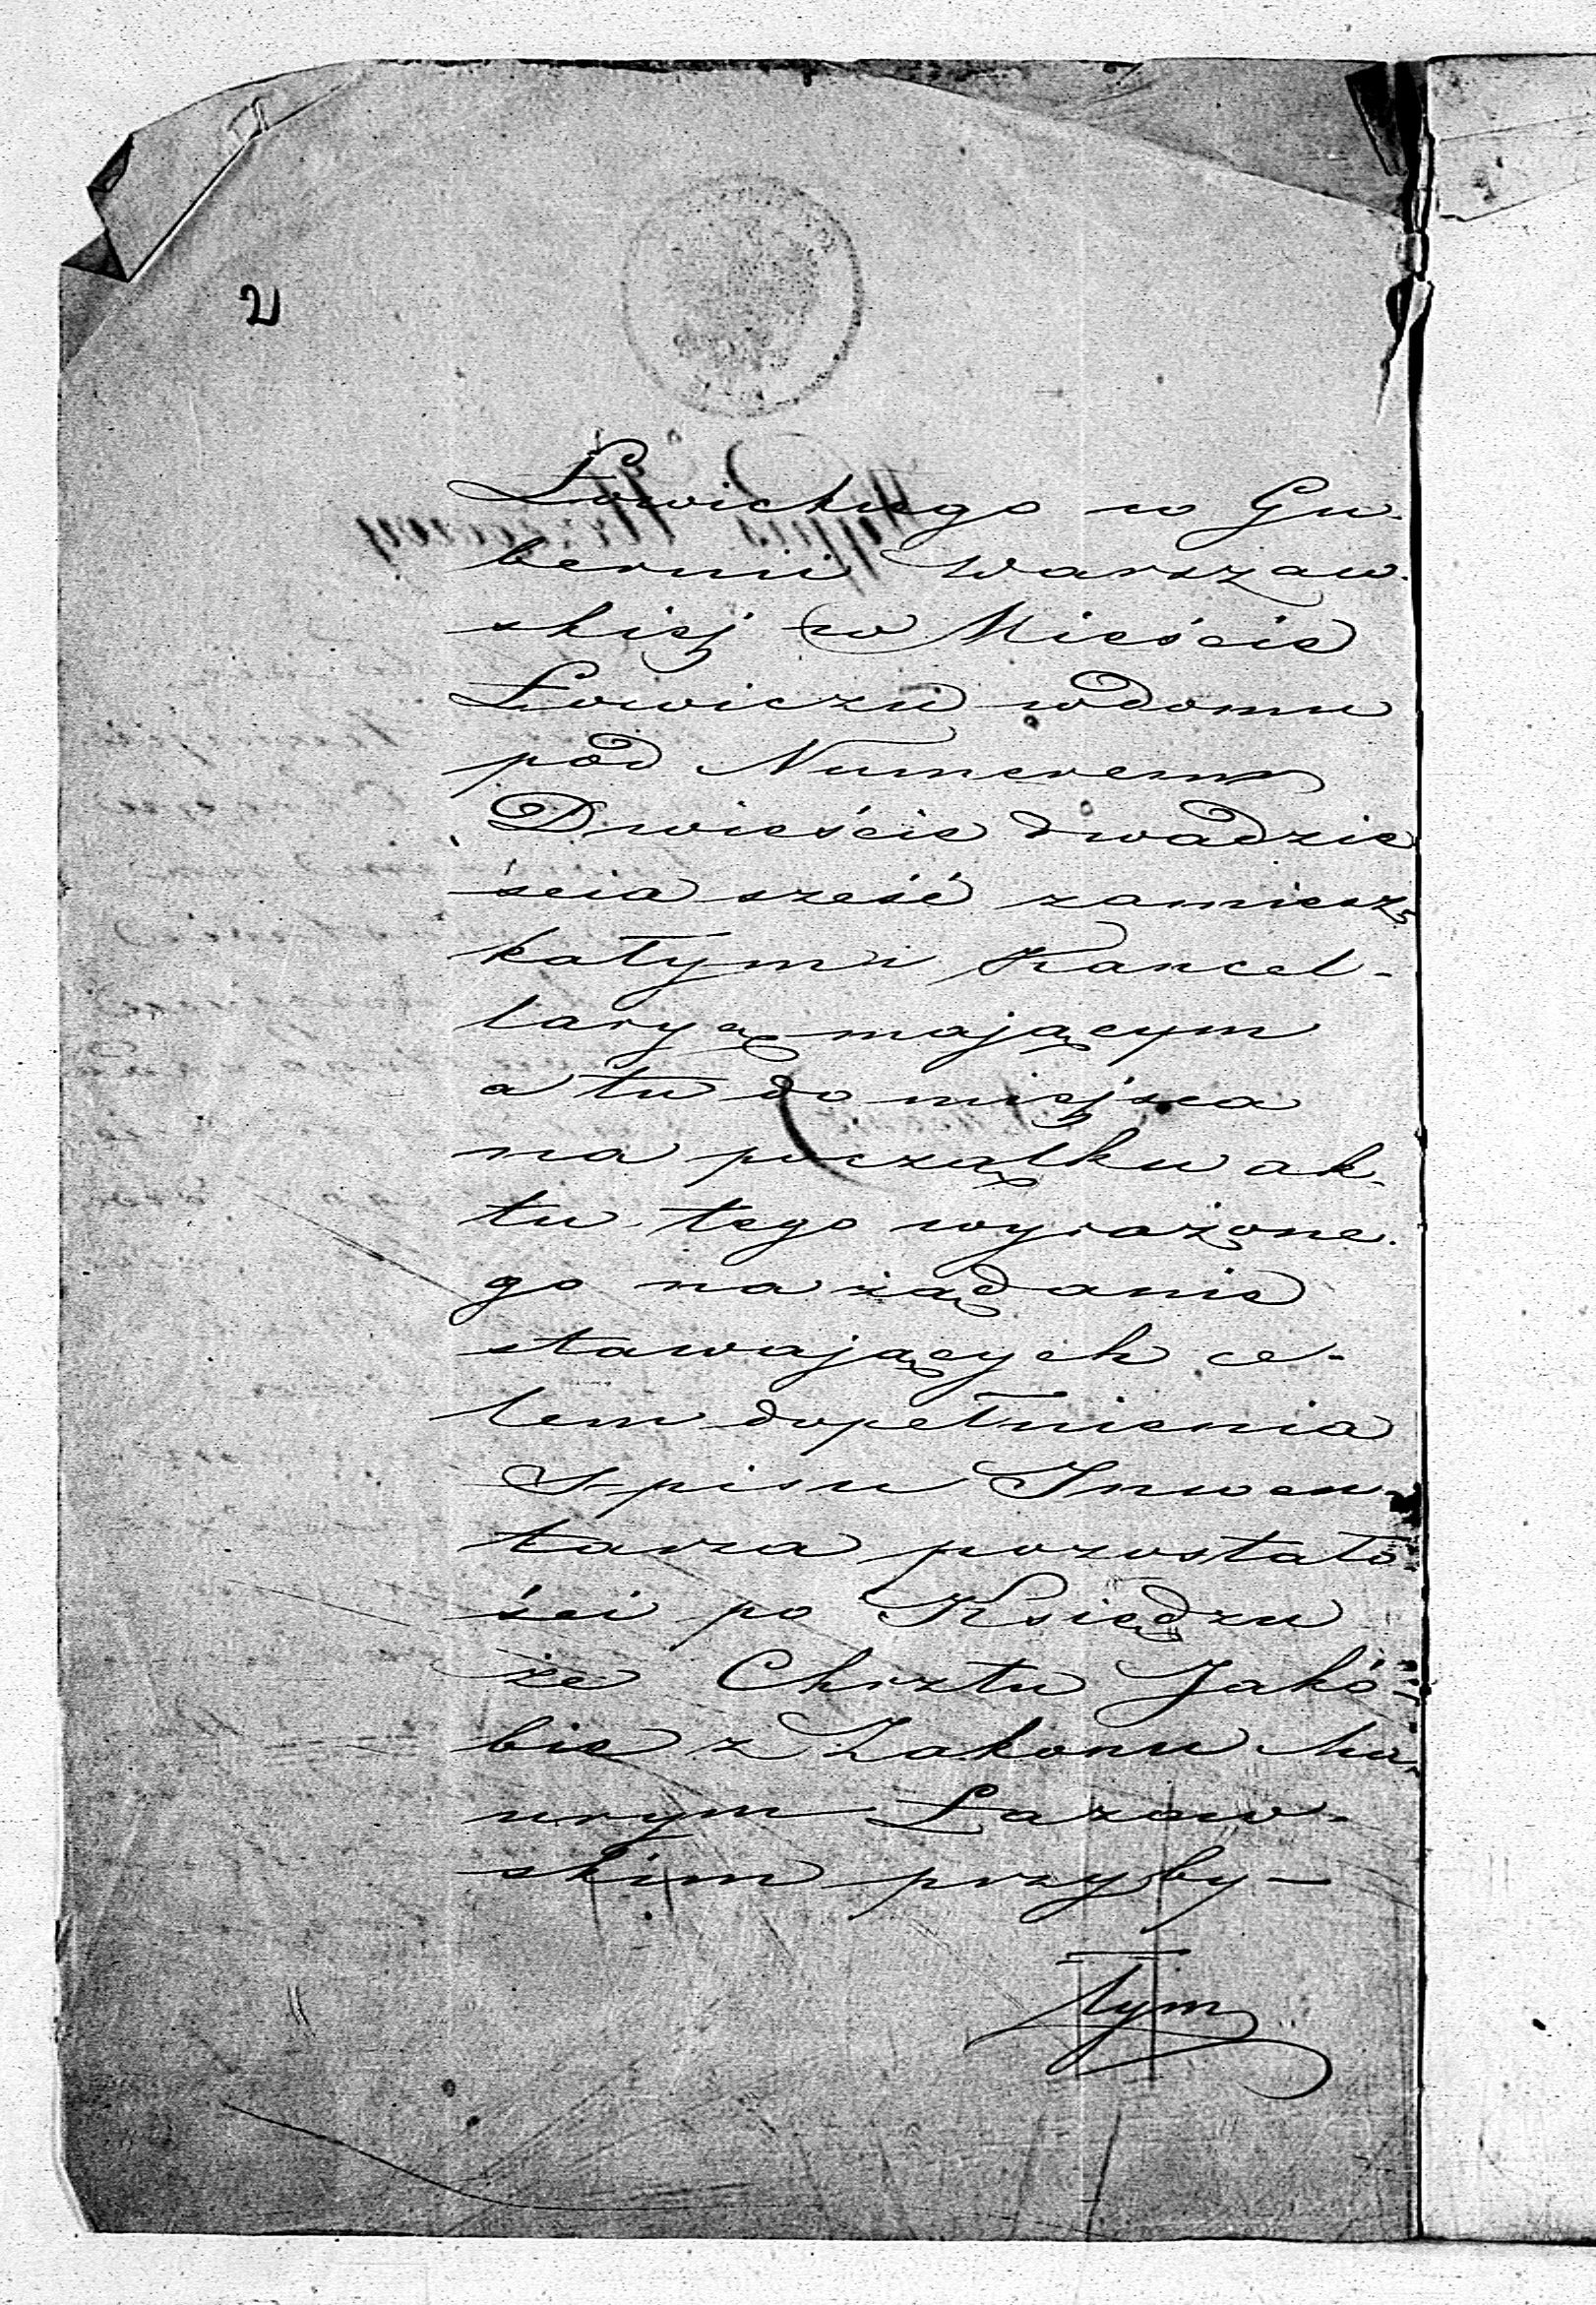 2
Łowickiego w Gu-
bernii Warszaw-
skiej w Mieście
Łowiczu w domu
pod Numerem
Dwieście dwadzie
ścia sześć zamiesz-
kałym i Kancel-
laryą mającym
a tu do miejsca
na początku ak-
tu tego wyrażone-
go na żądanie
stawających ce-
lem dopełnienia
Spisu Inwen-
tarza pozostało
ści po Księdzu
ze Chrztu Jakó-
bie z Zakonu Ma
urym Łazow-
skim przyby-
łym